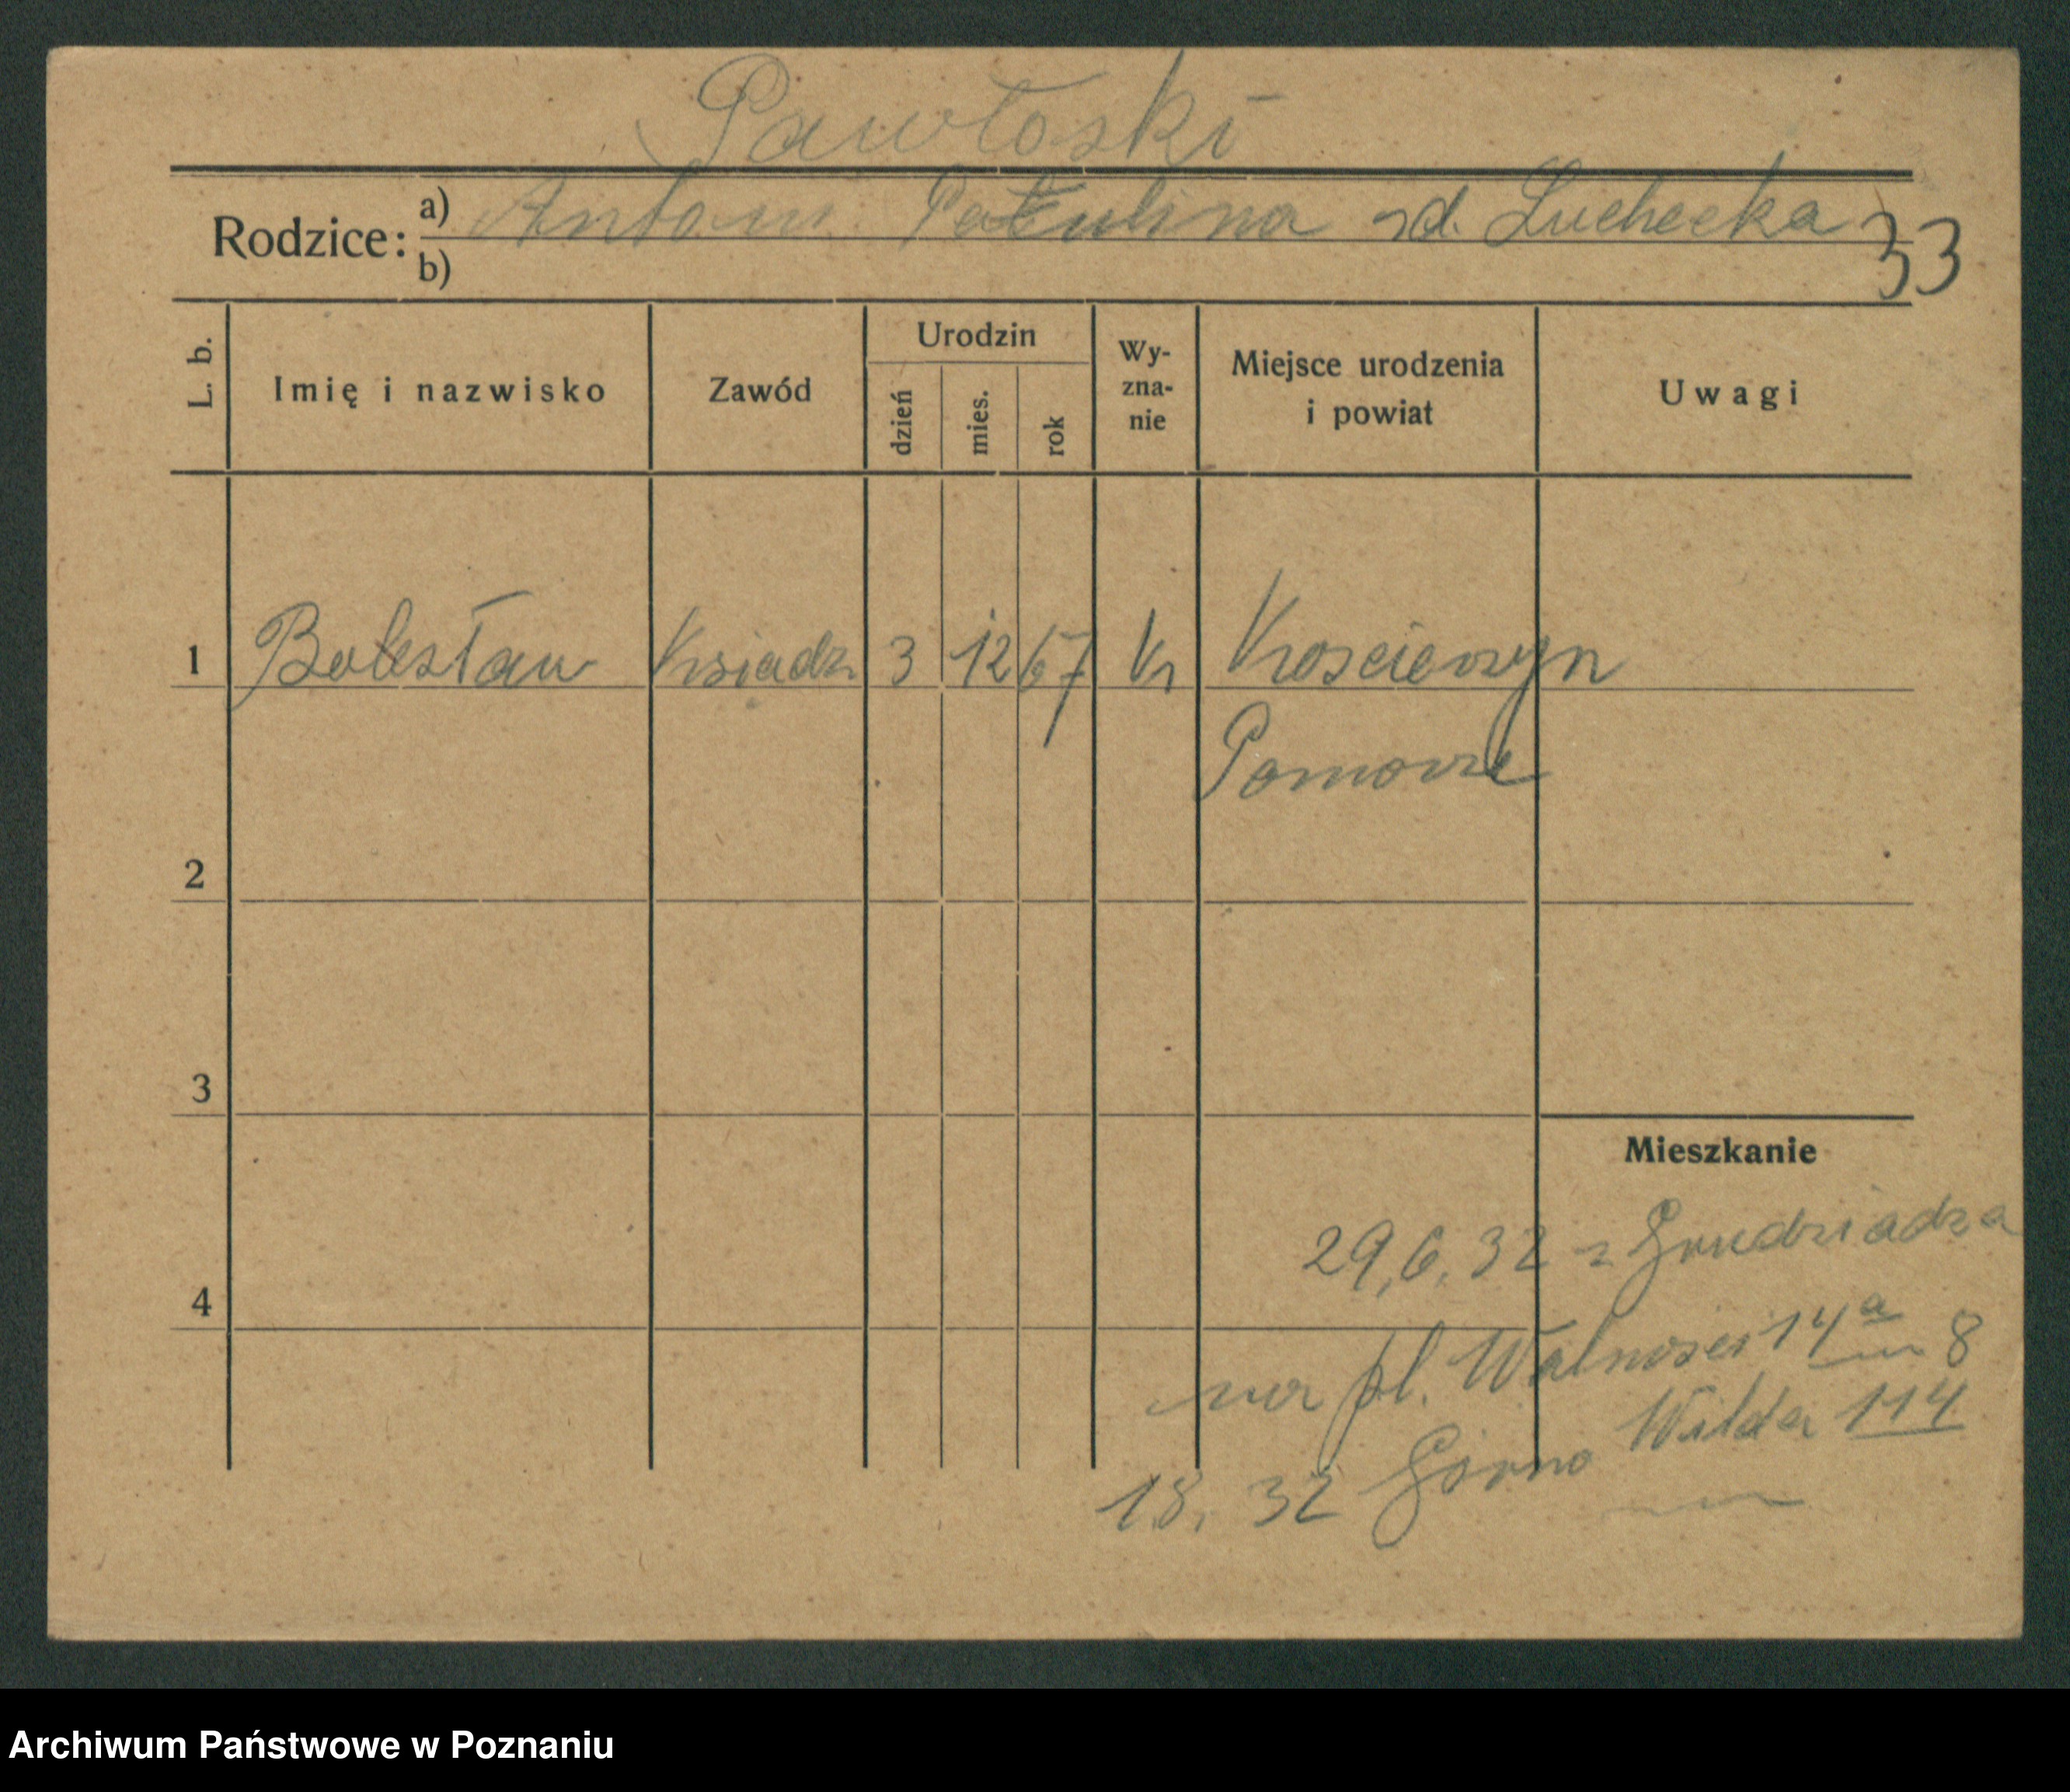 Pawłoski
Rodzice: a) Antoni Paulina zd. Luchecka
b)
33
L. b. Imię i nazwisko Zawód Urodzin dzień mies. rok Wy-zna-nie Miejsce urodzenia i powiat Uwagi
1 Bolesław Ksiadz 3 12 67 Kr Kroscienzyn
Pomorze
2
3
Mieszkanie
29,6,32 z Grudziadza
4
na pl. Wolnosci 14a m 8
1.8. 32 Górno Wilda 114
Archiwum Państwowe w Poznaniu